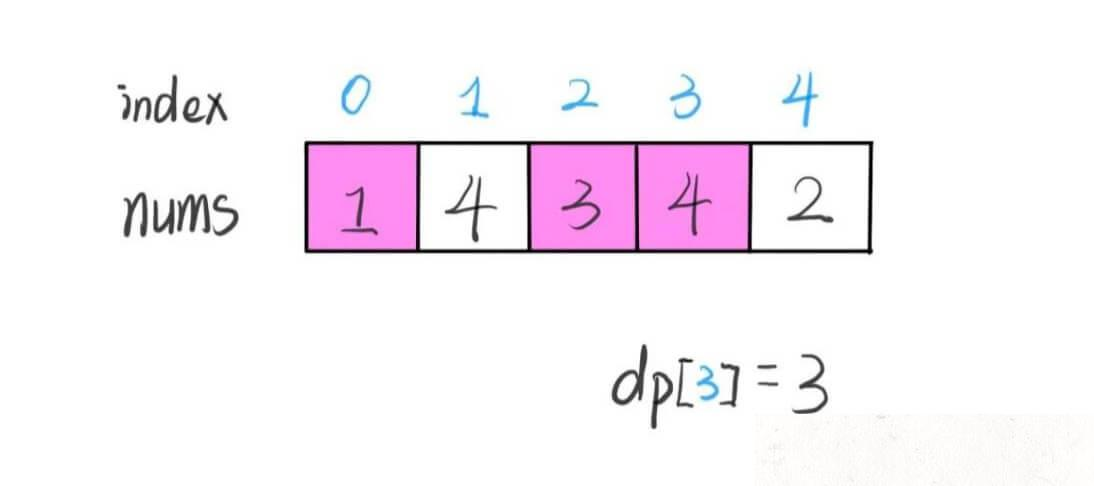 index 0 1 2 3 4
nums 1 4 3 4 2
dp[3] = 3